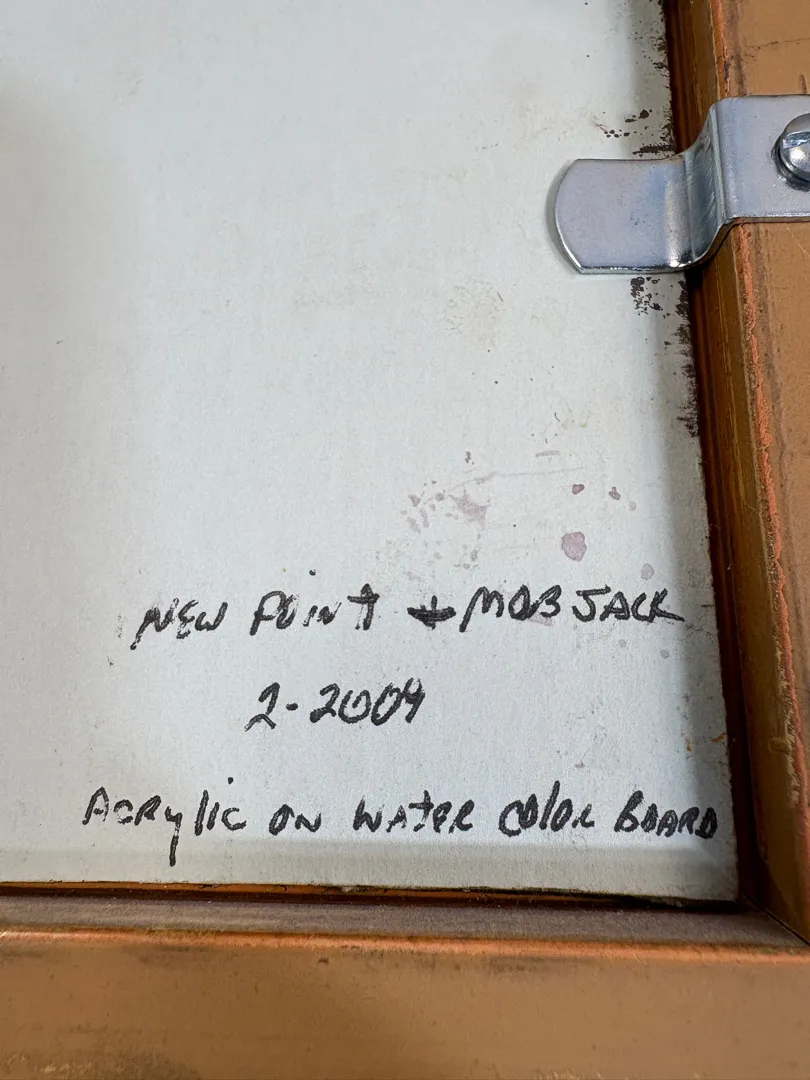 NEW POINT + MOBJACK
2-2004
ACRYlic ON WATER COLOR BOARD